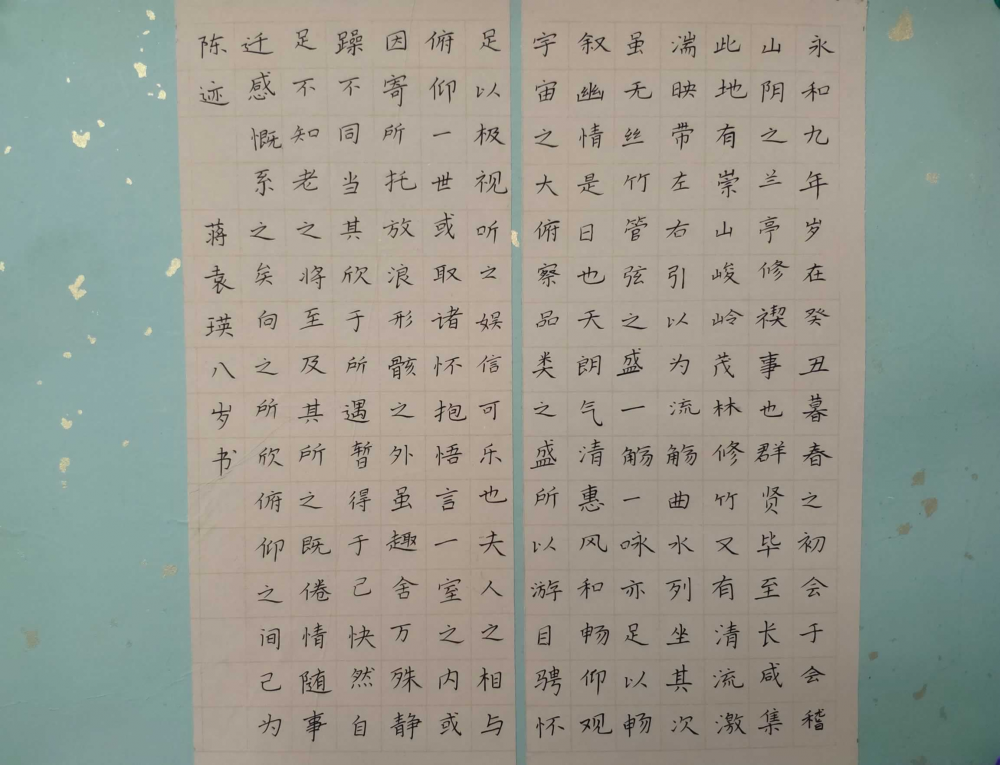 永和九年岁在癸丑暮春之初会于会稽
山阴之兰亭修禊事也群贤毕至长咸集
此地有崇山峻岭茂林修竹又有清流激
湍映带左右引以为流觞曲水列坐其次
虽无丝竹管弦之盛一觞一咏亦足以畅
叙幽情是日也天朗气清惠风和畅仰观
宇宙之大俯察品类之盛所以游目骋怀
足以极视听之娱信可乐也夫人之相与
俯仰一世或取诸怀抱悟言一室之内或
因寄所托放浪形骸之外虽趣舍万殊静
躁不同当其欣于所遇暂得于己快然自
足不知老之将至及其所之既倦情随事
迁感慨系之矣向之所欣俯仰之间己为
陈迹 蒋袁瑛八岁书